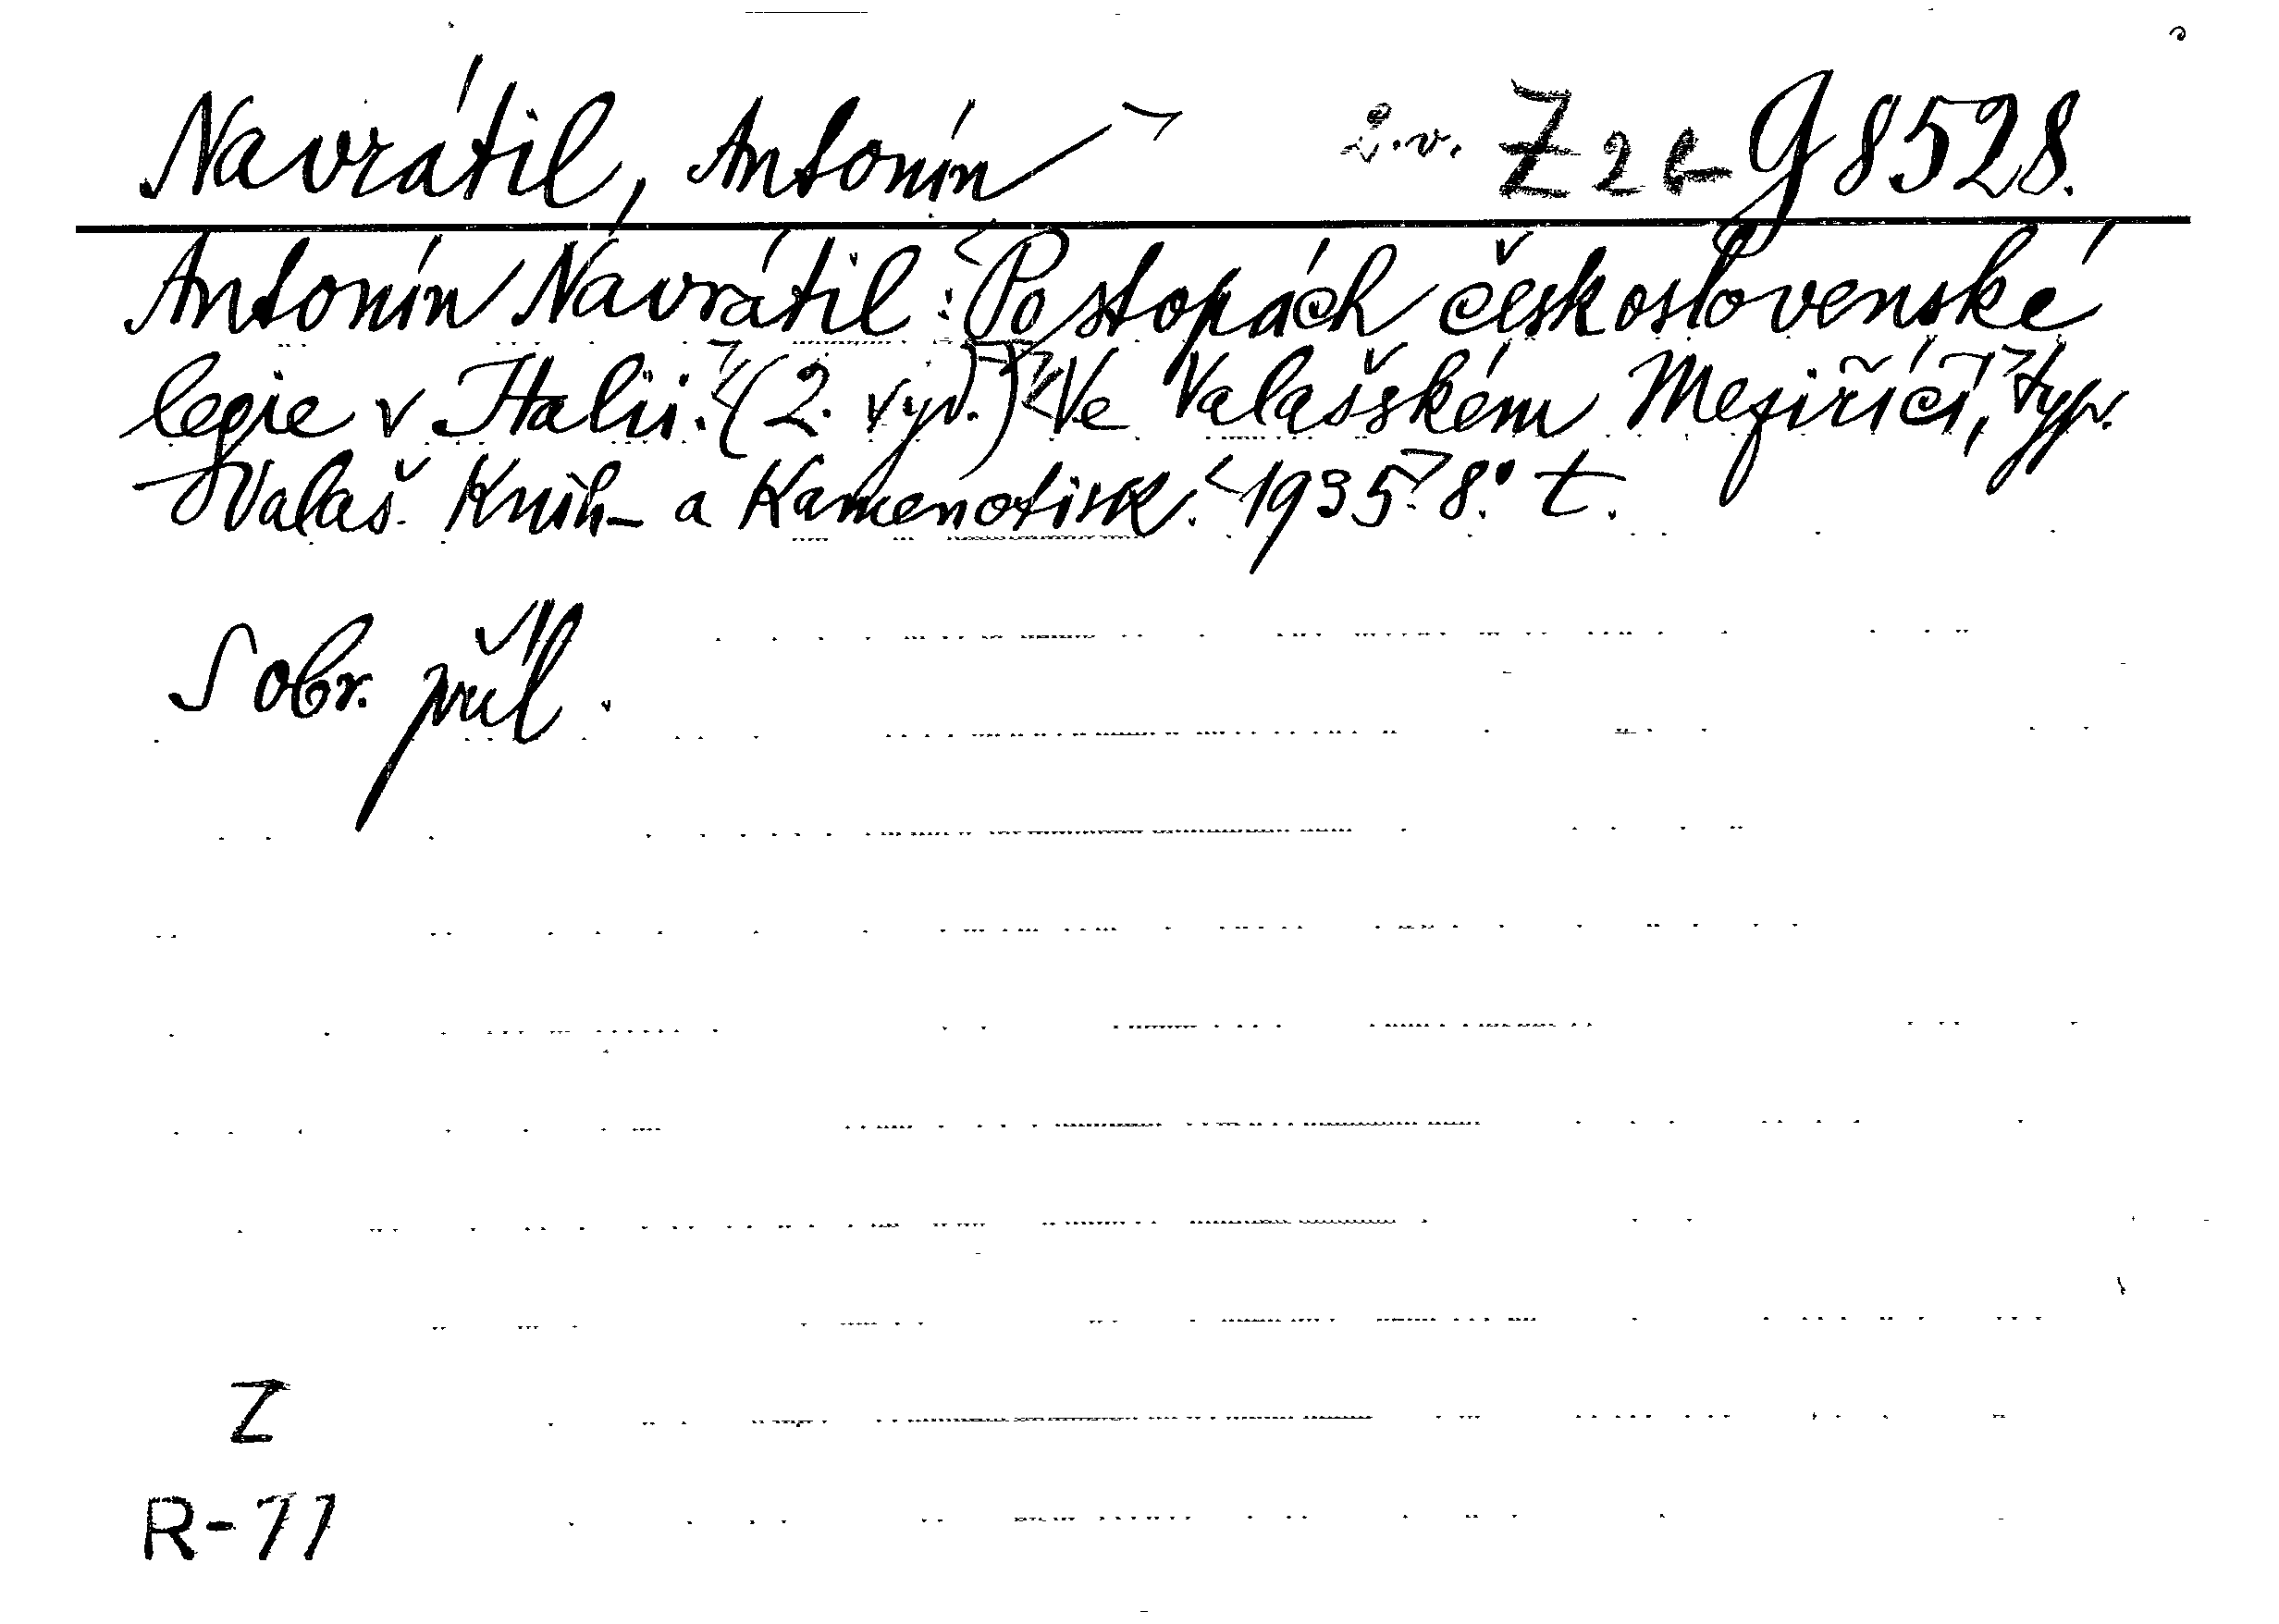 Navrátil, Antonín 2.v. Z 26-G 8528.
Antonín Navrátil: Po stopách československé
legie v Italii. (2. vyd.) Ve Valašském Meziříčí, typ.
Valaš. Knih- a Kamenotisk. 1935. 8.° t.
S obr. příl.
Z
R-11